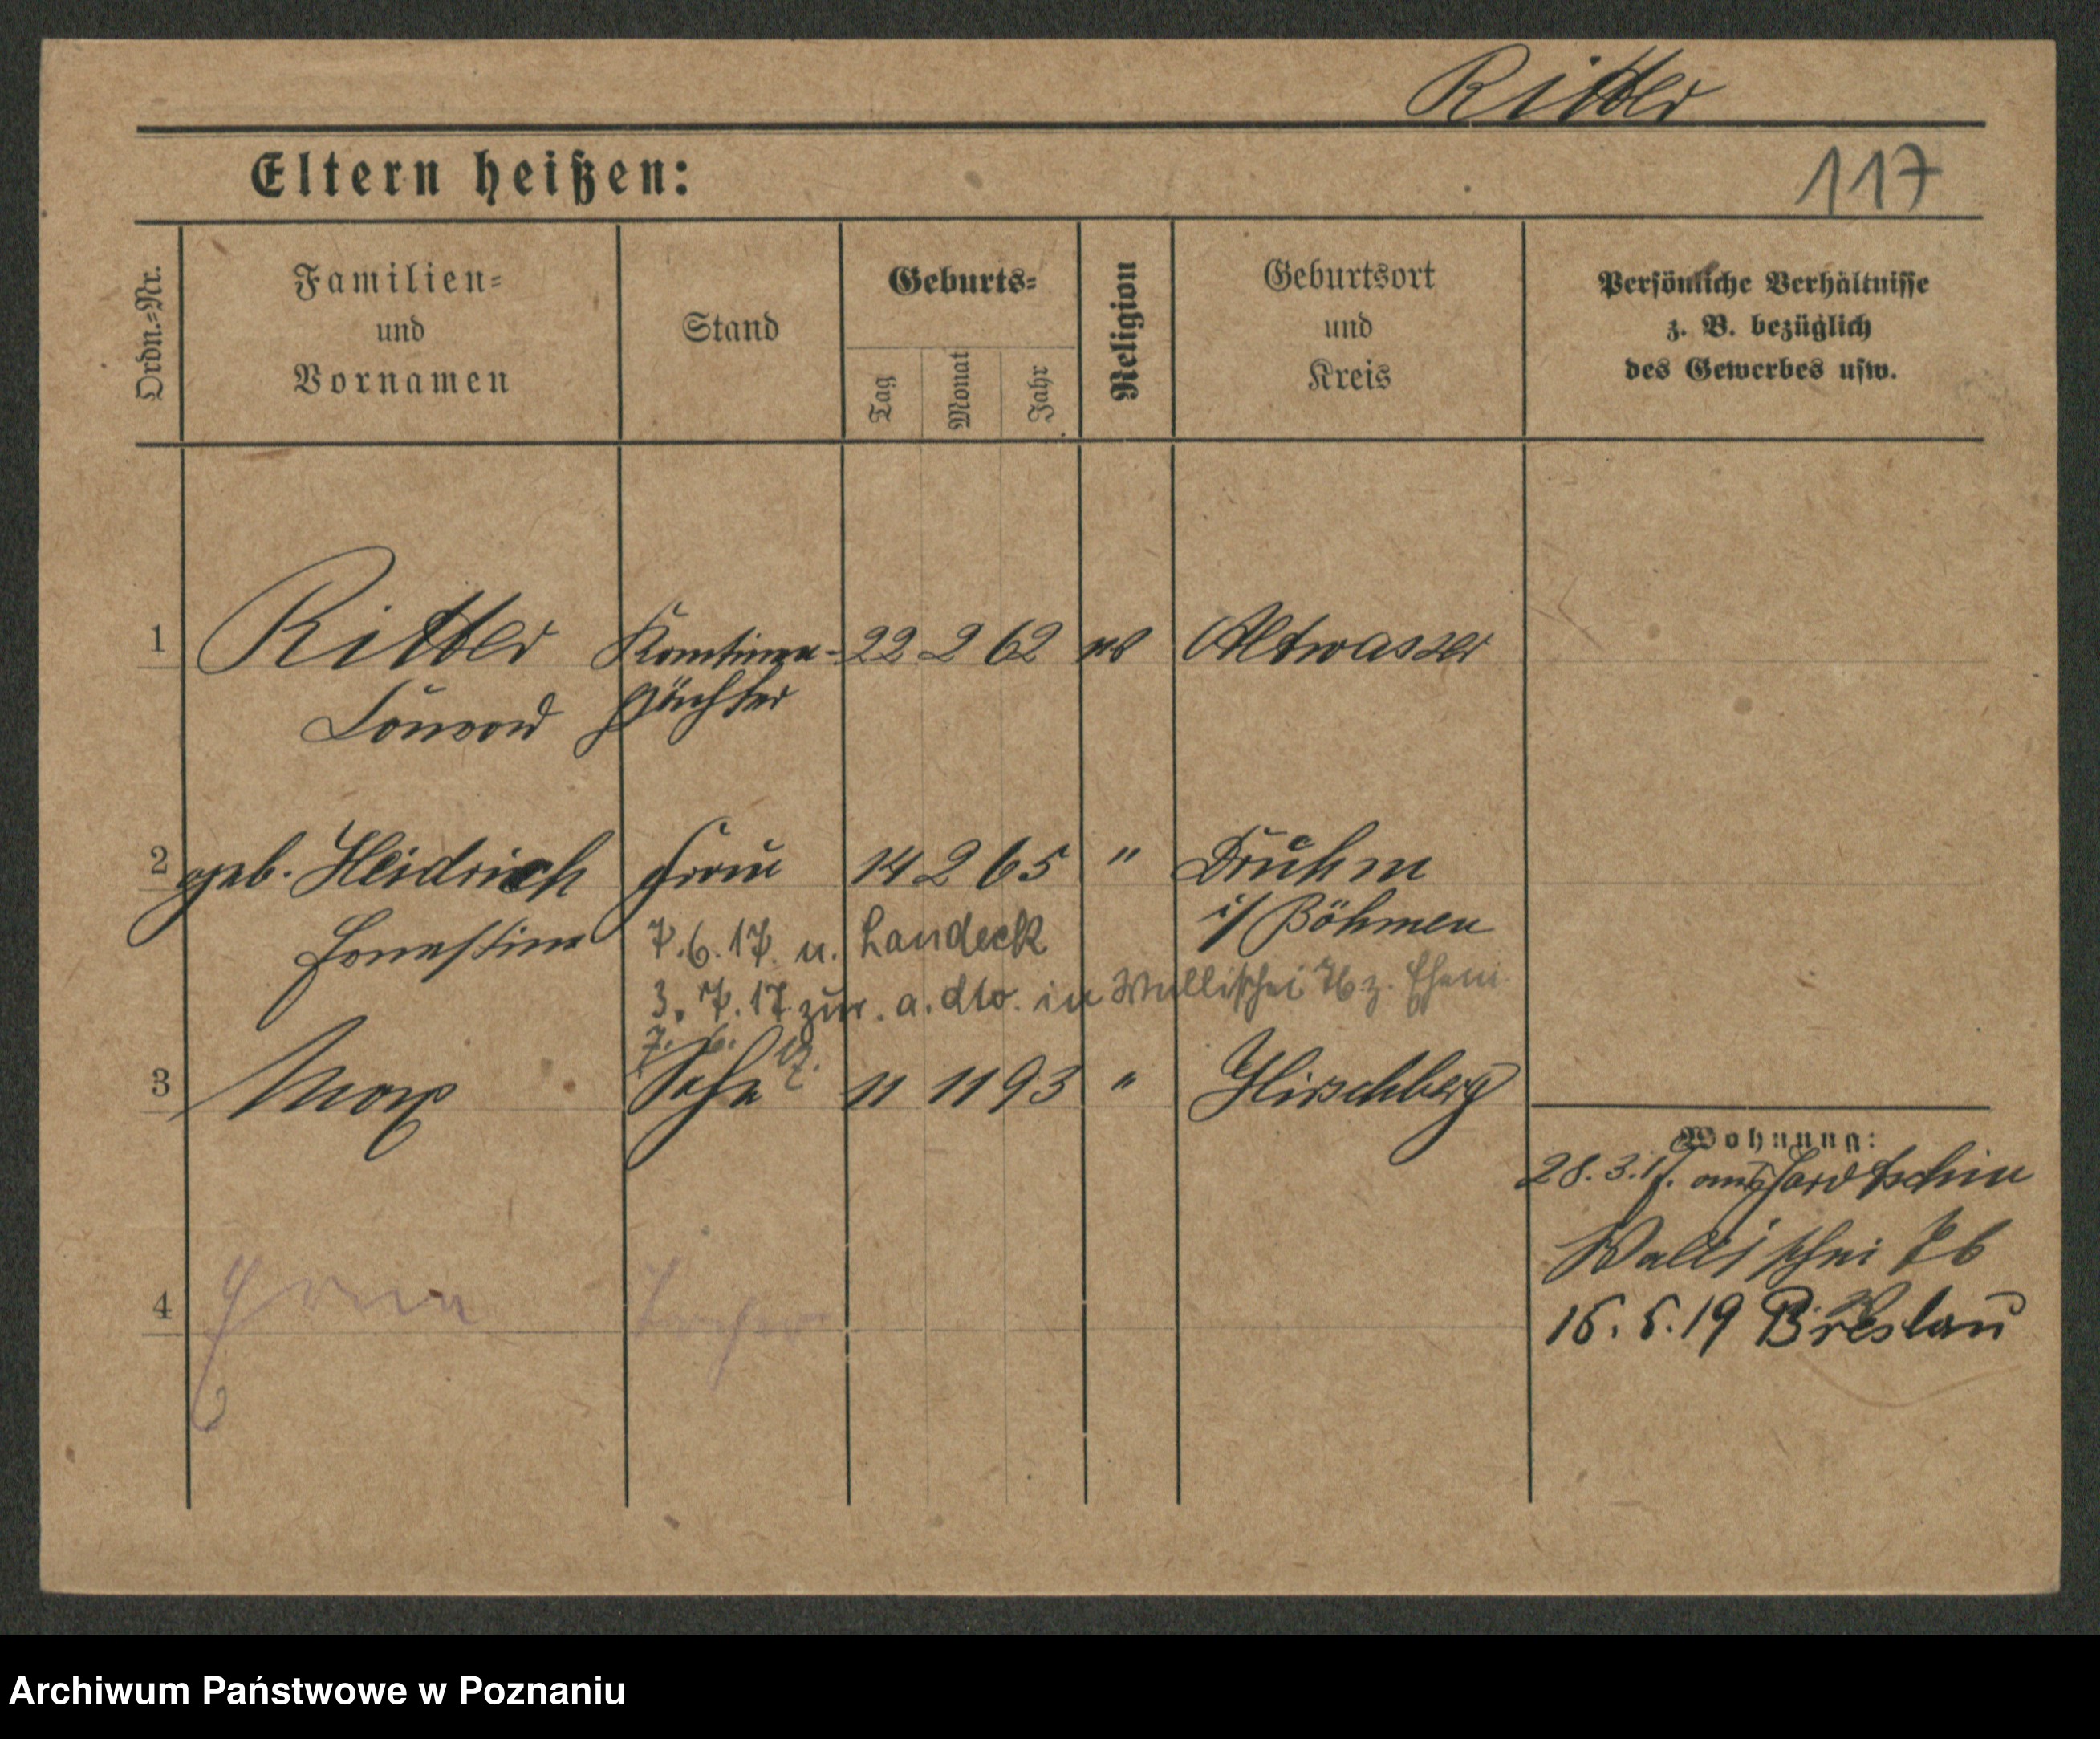 Ritter
Eltern heißen:
117
Ordn.-Nr.
Familien-
und
Vornamen
Stand
Geburts-
Tag
Monat
Jahr
Religion
Geburtsort
und
Kreis
Persönliche Verhältnisse
z. B. bezüglich
des Gewerbes usw.
1 Ritter Kantinen- 22 2 62 Altwasser
pächter
2 geb. Heidrich Frau 14 2 65 "
Ernestine i/ Böhmen
7.6.17. n. Landeck
3.7.17 zur. a. dto. in Wallischei 76 z.
7. 6. 17.
3 Max Sohn 11 11 93 " Hirschberg
Wohnung:
28.3.17. aus
Wallischei 76
4 Tochter
16.5.19 Breslau
Archiwum Państwowe w Poznaniu